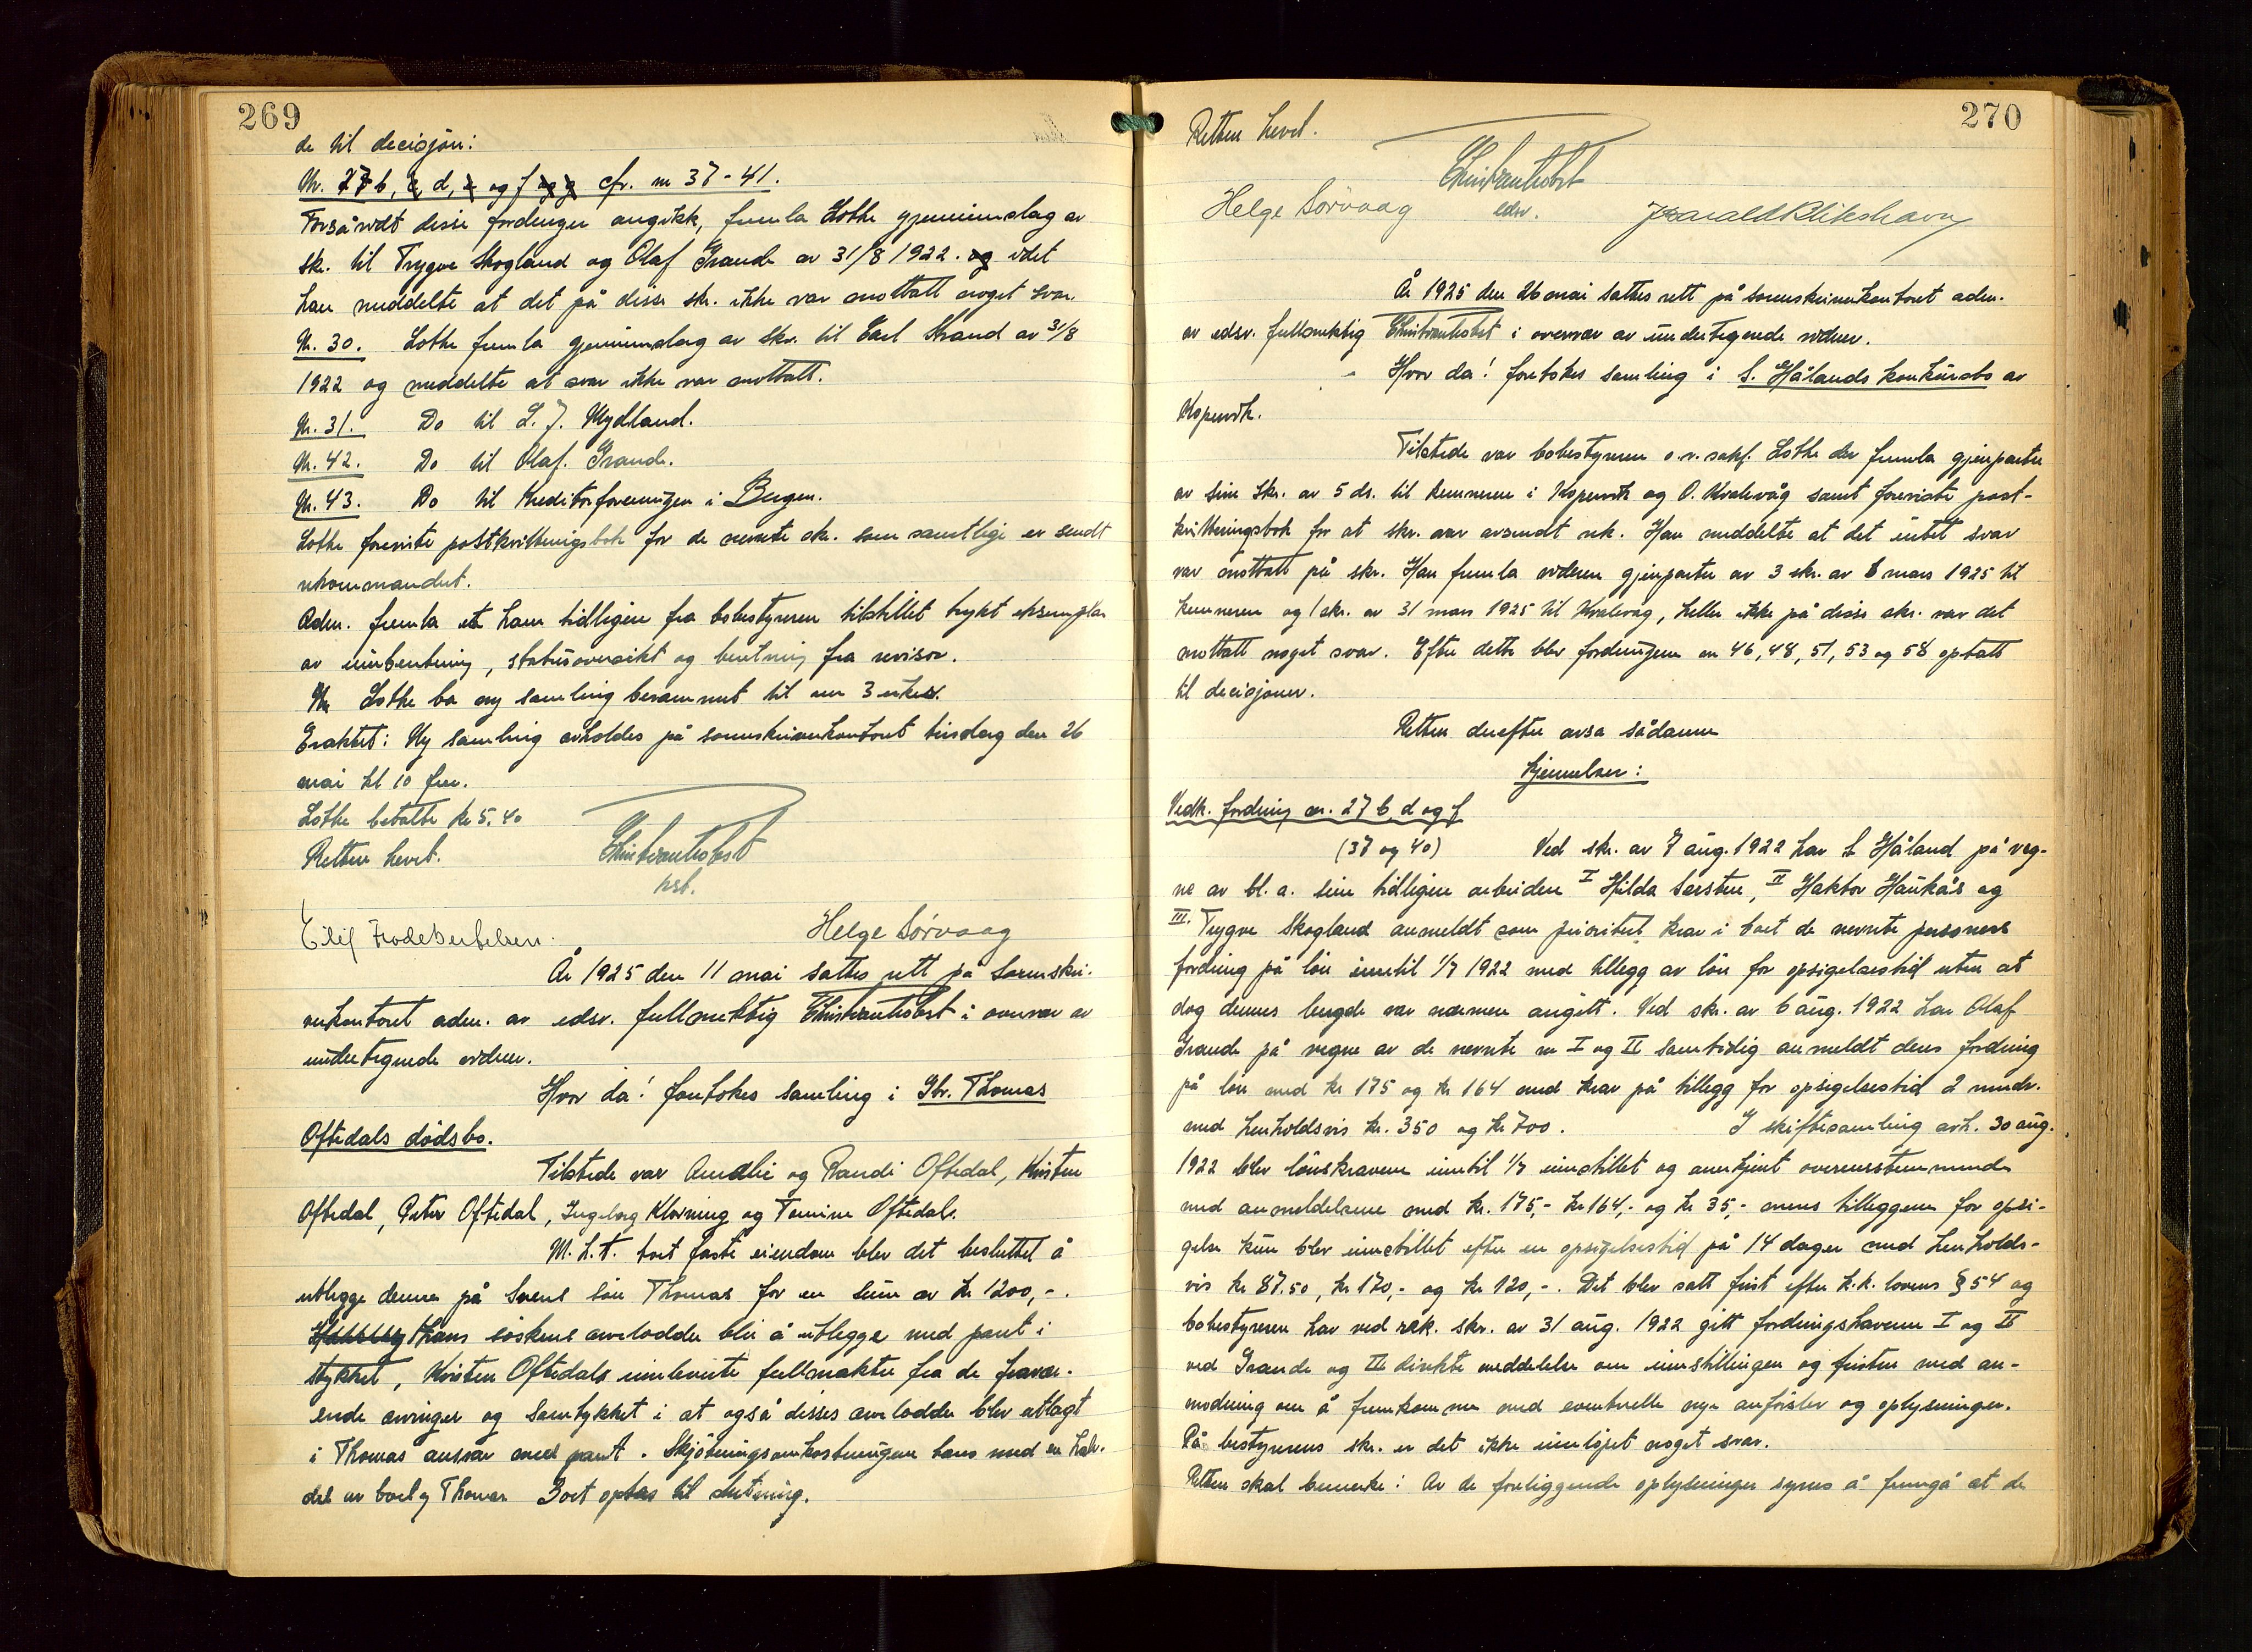 269
de til decisjon:
Nr. 27 b, c, d, e og f og g cfr. nr 37-41.
Forsåvidt disse fordringer angikk, fremla Lothe gjennemslag av
skr. til Trygve Skogland og Olaf Grande av 31/8 1922. og idet
han meddelte at det på disse skr. ikke var mottatt noget svar.
Nr. 30. Lothe fremla gjennemslag av skr. til Carl Strand av 31/8
1922 og meddelte at svar ikke var mottatt.
Nr. 31. Do til L. J. Mydland.
Nr. 42. Do til Olaf. Grande.
Nr. 43. Do til Kreditorforeningen i Bergen.
Lothe foreviste postkvitteringsbok for de nevnte skr. som samtlige er sendt
rekommandert.
Adm. fremla et ham tidligere fra bobestyreren tilstillet trykt eksemplar
av innberetning, statusoversikt og beretning fra revisor.
Lothe ba ny samling berammet til om 3 uker.
Eraktet: Ny samling avholdes på sorenskriverkontoret tirsdag den 26
mai kl 10 fm.
Lothe betalte kr 5.40
Retten hevet.
Eilif Frode Bertelsen. Helge Sørvaag
År 1925 den 11 mai sattes rett på Sorenskri-
verkontoret adm. av edsv. fullmektig i overvær av
undertegnede vidner.
Hvor da! foretokes samling i Gbr. Thomas
Oftedals dødsbo.
Tilstede var Amalie og Randi Oftedal, Kirsten
Oftedal, Peter Oftedal, Ingeborg Kløvning og Tomine Oftedal.
M. h. t. boet faste eiendom blev det besluttet å
utlegge denne på Svens søn Thomas for en sum av kr 1200,-.
Hans søskens arvelodder blir å utlegge med pant i
stykket, Kirsten Oftedals innleverte fullmakter fra de fravær-
ende arvinger og samtykket i at også disses arvelodder blev utlagt
i Thomas ansvar med pant. Skjøtningsomkostningene bæres med en halv-
del av boet og Thomas Boet optas til slutning.
270
Retten hevet.
Helge Sørvaag edsv. Harald Blikshavn
År 1925 den 26 mai sattes rett på sorenskriverkontoret adm.
av edsv. fullmektig i overvær av undertegnede vidner.
Hvor da! foretokes samling i S. Hålands konkursbo av
Kopervik.
Tilstede var bobestyreren o.r.sakf. Lothe der fremla gjenparter
av sine skr. av 5 ds. til kemneren i Kopervik og O. Kvalevåg samt foreviste post-
kvitteringsbok for at skr. var avsendt rek. Han meddelte at det intet svar
var mottatt på skr. Han fremla videre gjenparter av 3 skr. av 6 mars 1925 til
kemneren og 1 skr. av 31 mars 1925 til Kvalevåg, heller ikke på disse skr. var det
mottatt noget svar. Efter dette blev fordringene nr 46, 48, 51, 53 og 58 optatt
til decisjoner.
Retten derefter avsa sådanne
Kjennelser:
Vedk. fordring nr. 27 b, d og f
(37 og 40) Ved skr. av 7 aug. 1922 har S Håland på veg-
ne av bl. a. sine tidligere arbeidere I Hilda Sersten, II Haktor Haukås og
III. Trygve Skogland anmeldt som prioritert krav i boet de nevnte personers
fordring på løn inntil 1/7 1922 med tillegg av løn for opsigelsestid uten at
dog dennes lengde var nærmere angitt. Ved skr. av 6 aug. 1922 har Olaf
Grande på vegne av de nevnte nr I og II samtidig anmeldt deres fordring
på løn med kr 175 og kr 164 med krav på tillegg for opsigelsestid 2 mndr.
med henholdsvis kr. 350 og kr 700. I skiftesamling avh. 30 aug.
1922 blev lønskravene inntil 1/7 innstillet og anerkjent overensstemmende
med anmeldelsene med kr. 175,- kr 164,- og kr 35,- mens tilleggene for opsi-
gelse kun blev innstillet efter en opsigelsestid på 14 dager med henholds-
vis kr 87.50, kr 170,- og kr 120,-. Det blev satt frist efter k.k. lovens § 54 og
bobestyreren har ved rek. skr. av 31 aug. 1922 gitt fordringshaverne I og II
ved Grande og III direkte meddelelse om innstillingen og fristen med an-
modning om å fremkomme med eventuelle nye anførsler og oplysninger.
På bestyrerens skr. er det ikke innløpet noget svar.
Retten skal bemerke: Av de foreliggende oplysninger synes å fremgå at de